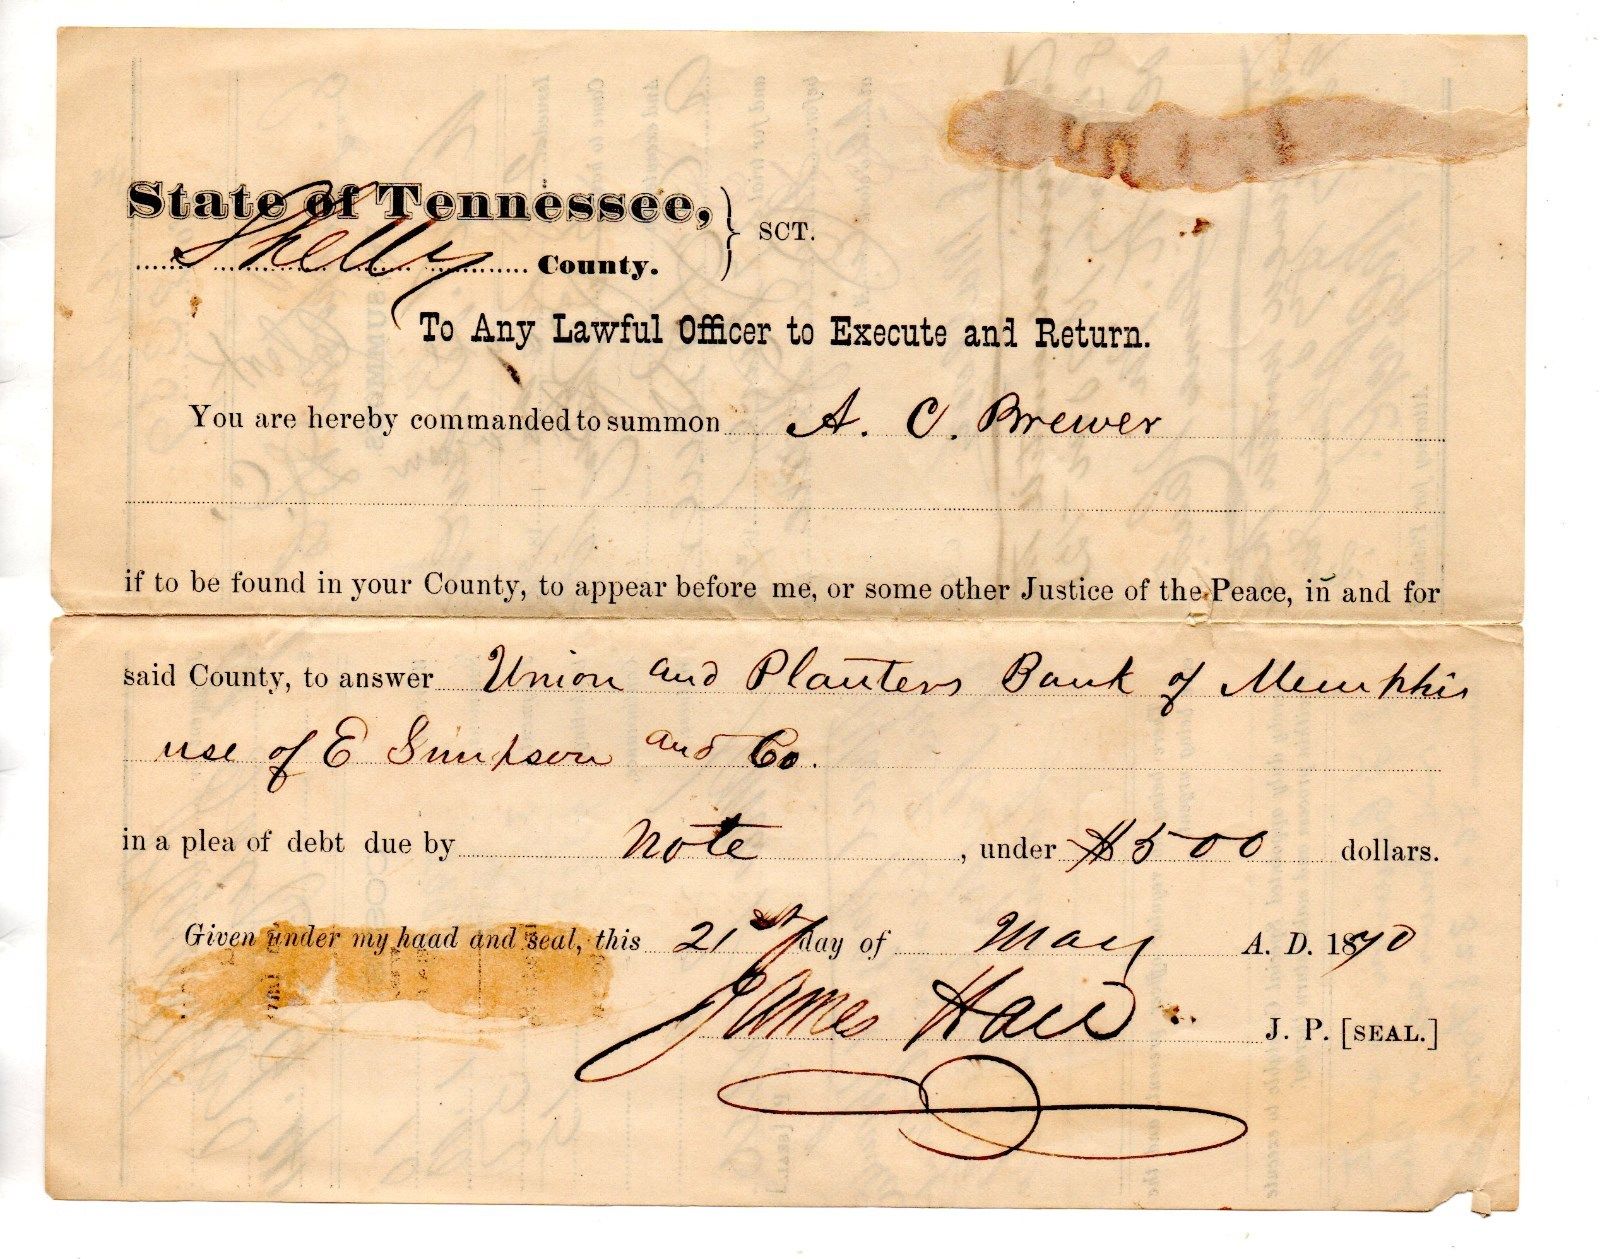 State of Tennessee,
Shelby County. } SCT.
To Any Lawful Officer to Execute and Return.
You are hereby commanded to summon A. C. Brewer
if to be found in your County, to appear before me, or some other Justice of the Peace, in and for
said County, to answer Union and Planters Bank of Memphis
use of E Simpson and Co.
in a plea of debt due by note, under $500 dollars.
Given under my haad and seal, this 21st day of May A. D. 1870
James Hall J. P. [SEAL.]